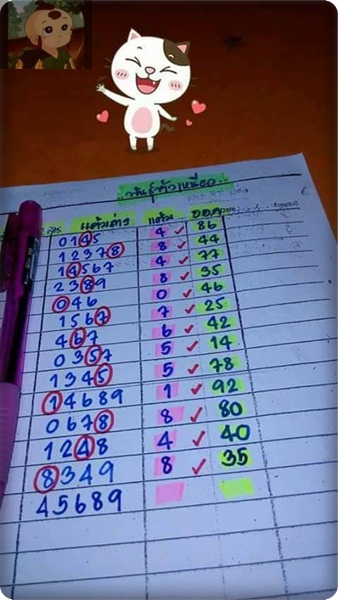 แต้ม
0145 4 ✓ 86
12378 8 ✓ 44
14567 4 ✓ 77
2389 8 ✓ 35
046 0 ✓ 46
1567 7 ✓ 25
467 6 ✓ 42
0357 5 ✓ 14
1345 5 ✓ 78
14689 1 ✓ 92
0678 8 ✓ 80
1248 4 ✓ 40
8349 8 ✓ 35
45689